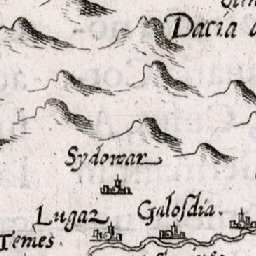 Dacia
Sydowar
Lugaz
Galosdia.
Temes.